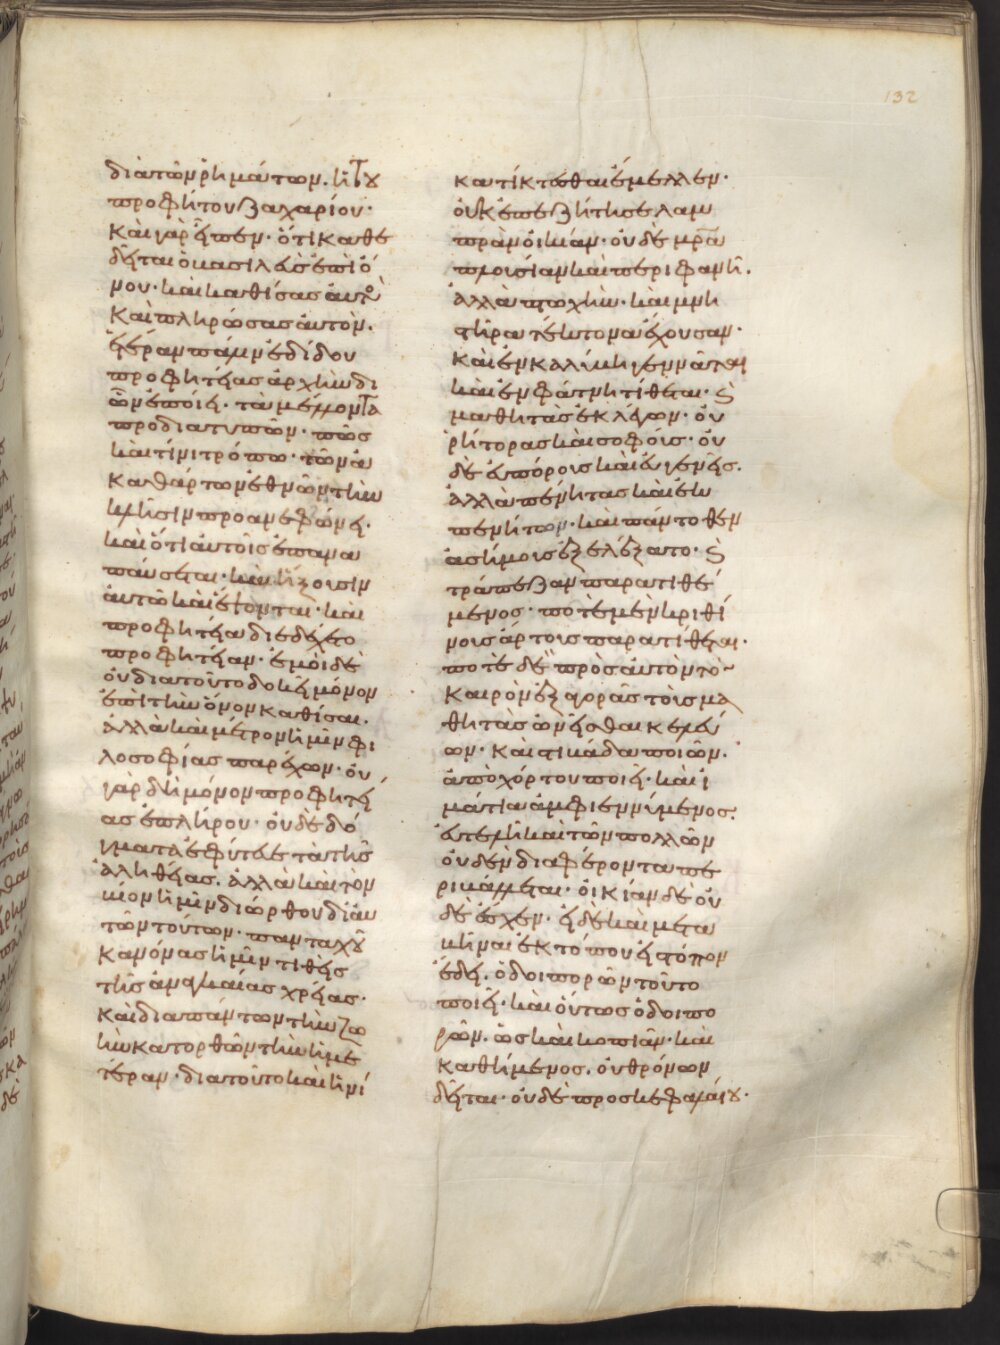 132
διὰ τῶν ῥημάτων. ἢ τοῦ
προφήτου Ζαχαρίου·
καὶ γὰρ εἶπεν· ὅτι καθε
δεῖται ὁ βασιλεὺς ἐπὶ ὄ
νον· καὶ καθίσας αὐτὸς
καὶ πληρώσας αὐτὸν.
ἑτέραν πάλιν ἐδίδου
προφητείας ἀρχὴν δι
ὧν ἐποίει· τὰ μέλλοντα
προδιατυπῶν· πῶς
καὶ τίνι τρόπω· τῶν ἀ
καθάρτων ἐθνῶν τὴν
κλῆσιν προανεφώνει·
καὶ ὅτι αὐτοῖς ἐπανα
παύσεται· καὶ ἥξουσιν
αὐτῶ καὶ ἕψονται· καὶ
προφητεία διεδέχετο
προφητείαν· ἐμοὶ δὲ
οὐ διατοῦτο δοκεῖ μόνον
ἐπὶ τὴν ὄνον καθίσαι.
ἀλλὰ καὶ μέτρον ἡμῖν φι
λοσοφίας παρέχων· οὐ
γὰρ δὴ μόνον προφητεί
ας ἐπλήρου· οὐδὲ δό
γματα ἐφύτευε τὰ τῆς
ἀληθείας. ἀλλὰ καὶ τὸν
βίον ἡμῖν διώρθου διὰ
τῶν τούτων· πανταχοῦ
κανόνας ἡμῖν τιθεὶς
τῆς ἀναγκαίας χρείας·
καὶ διαπάντων τὴν ζω
ὴν κατορθῶν τὴν ἡμε
τέραν· διατοῦτο καὶ ἡνί
κα τίκτεσθαι ἔμελλεν·
οὐκ ἐπεζήτησε λαμ
πρὰν οἰκίαν· οὐδὲ μρα
πλουσίαν καὶ περιφανῆ.
ἀλλὰ πτωχὴν· καὶ μνη
στῆρα τέκτονα ἔχουσαν·
καὶ ἐν καλύβη γεννᾶται
καὶ ἐν φάτνη τίθεται· καὶ
μαθητὰς ἐκλέγων· οὐ
ῥήτορας καὶ σοφούς· οὐ
δὲ εὐπόρους καὶ εὐγενεῖς.
ἀλλὰ πένητας καὶ ἐκ
πενήτων· καὶ πάντοθεν
ἀσήμους ἐξελέξατο· καὶ
τράπεζαν παρατιθέ
μενος· ποτὲ μὲν κριθί
νους ἄρτους παρατίθεται·
ποτὲ δὲ πρὸς αὐτὸν τὸν
καιρὸν ἐξ ἀγορᾶς τοῖς μα
θηταῖς ὠνεῖσθαι κελεύ
ων· καὶ στιβάδα ποιῶν.
ἀπὸ χόρτου ποιεῖ· καὶ ἱ
μάτια ἀμφιεννύμενος·
εὐτελῆ καὶ τῶν πολλῶν
οὐδὲν διαφέροντα πε
ριβάλλεται· οἰκίαν δὲ οὐ
δὲ ἔσχεν· εἰ δὲ καὶ μετα
βῆναι ἐκ τόπου εἰς τόπον
ἔδει. ὁδοιπορῶν τοῦτο
ποιεῖ· καὶ οὕτως ὁδοιπο
ρῶν. ὡς καὶ κοπιᾶν· καὶ
καθήμενος. οὐ θρόνων
δεῖται· οὐδὲ προσκεφαλαίου·